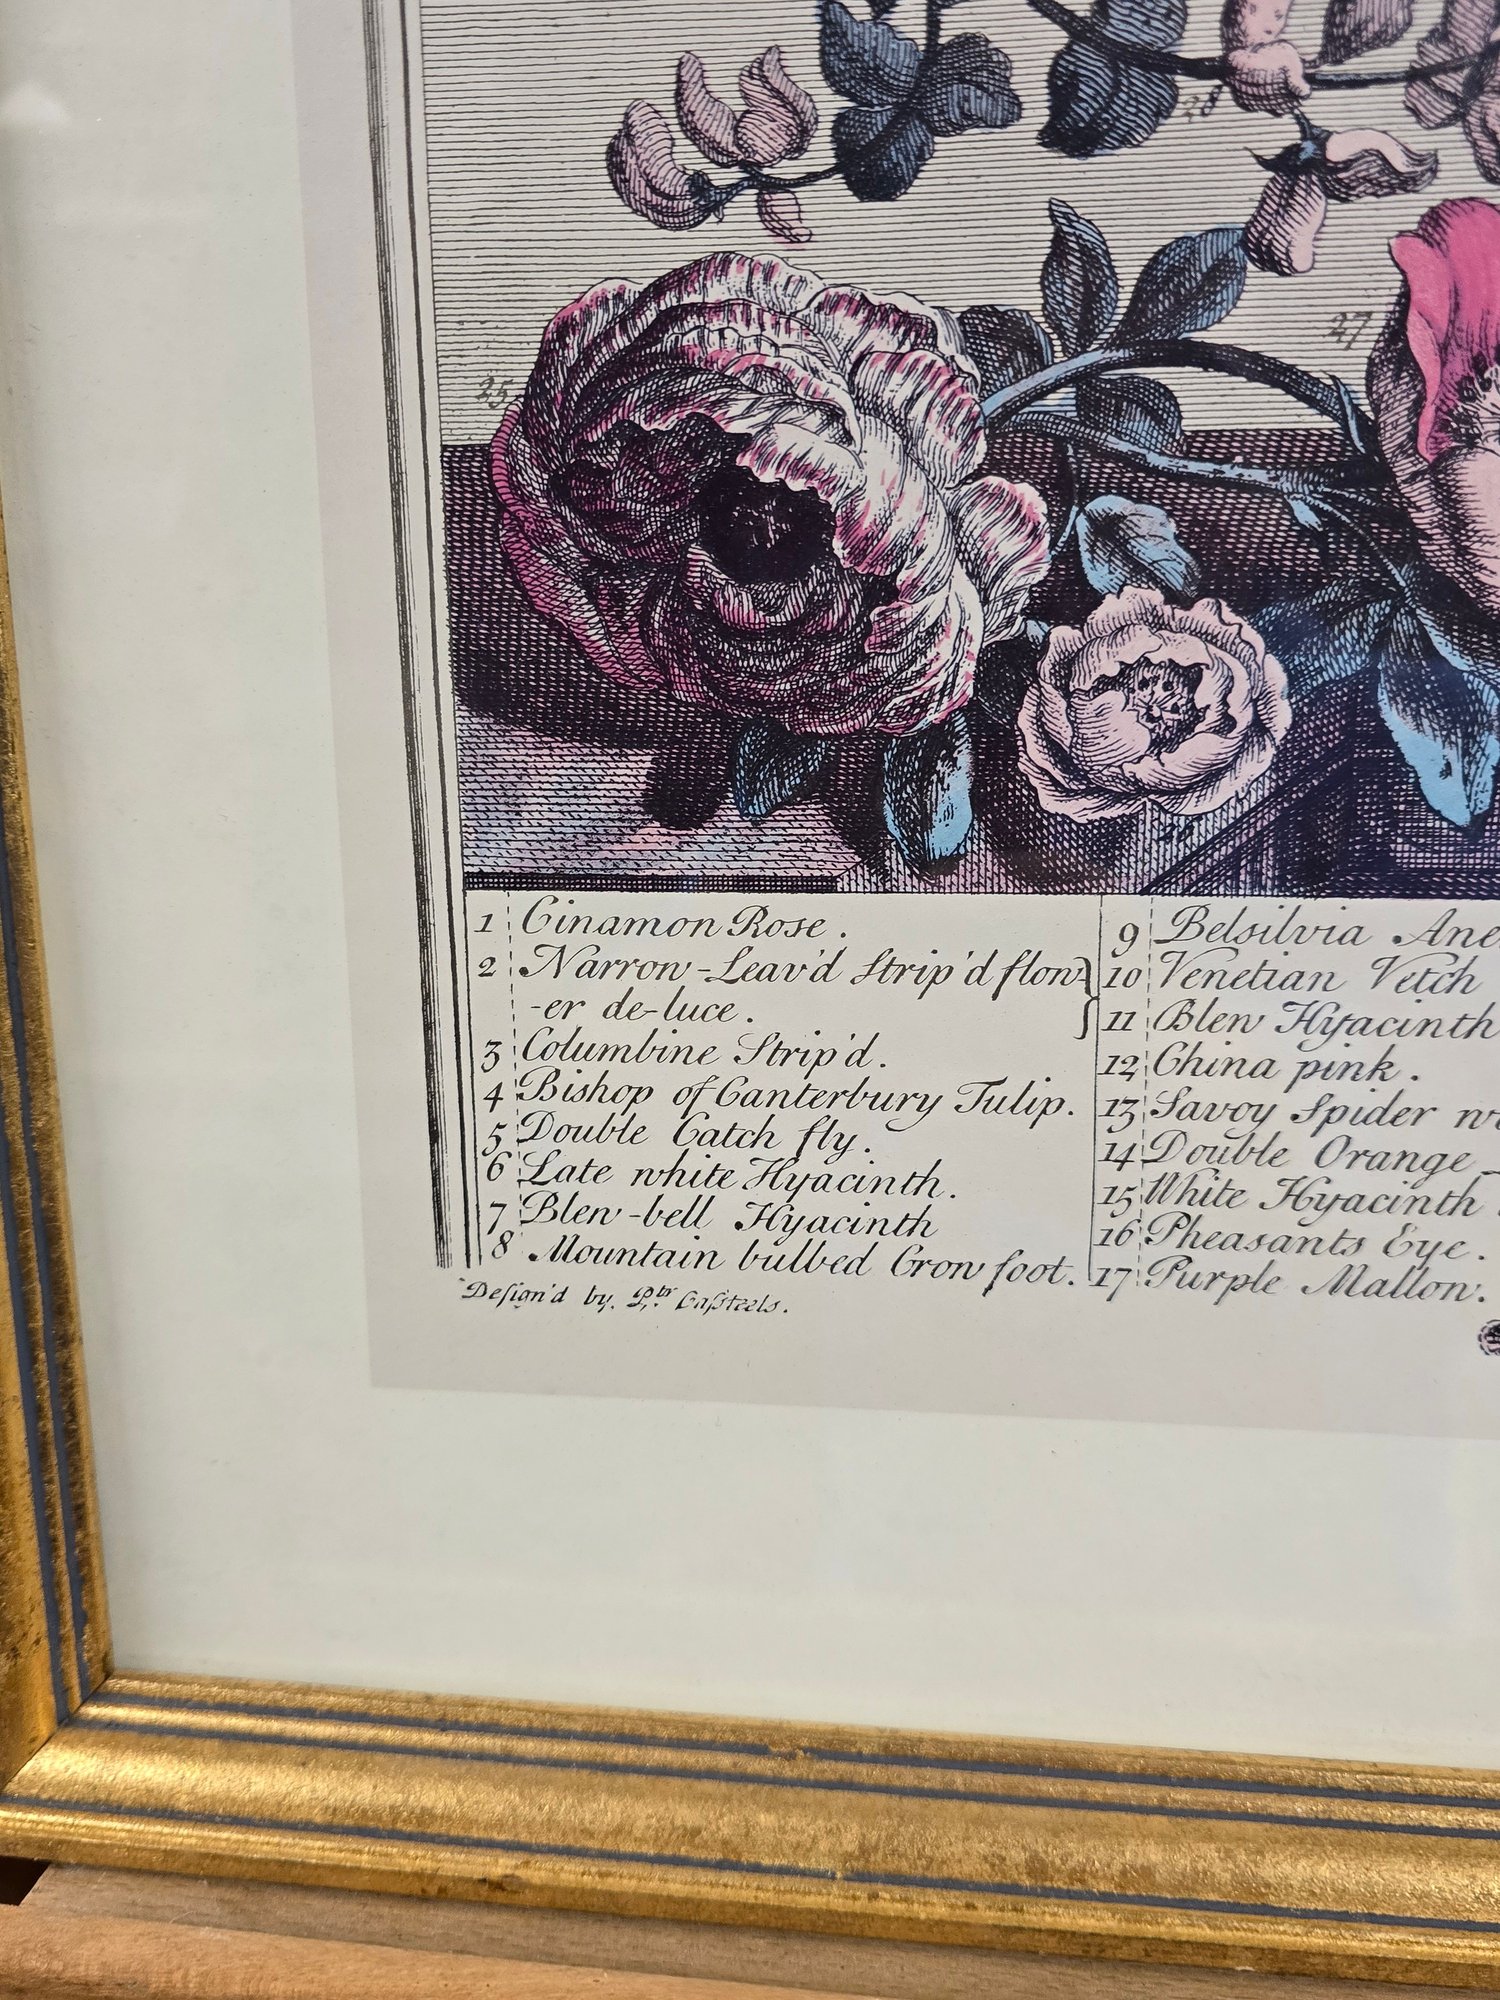 28
27
25
1 Cinamon Rose.
2 Narrow-Leav'd Strip'd flow-
-er de-luce.
3 Columbine Strip'd.
4 Bishop of Canterbury Tulip.
5 Double Catch fly.
6 Late white Hyacinth.
7 Blew-bell Hyacinth
8 Mountain bulbed Crow foot.
9 Belsilvia Ane
10 Venetian Vetch
11 Blew Hyacinth
12 China pink.
13 Savoy Spider w
14 Double Orange
15 White Hyacinth
16 Pheasants Eye.
17 Purple Mallow.
Design'd by Ptr. Casteels.